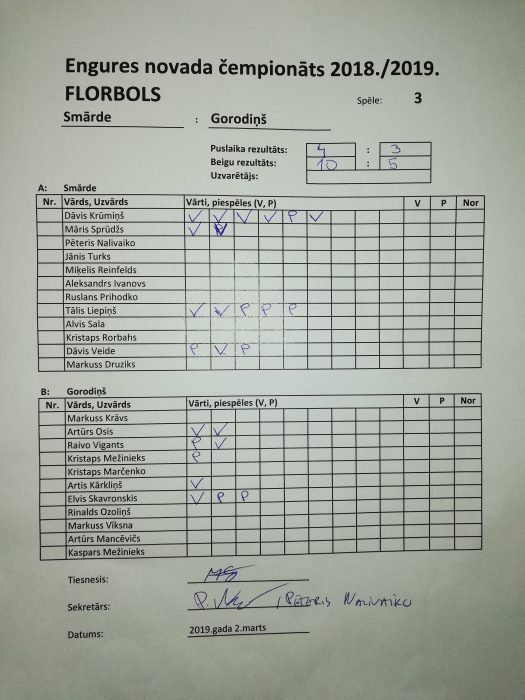 Engures novada čempionāts 2018./2019.
FLORBOLS
Spēle: 3
Smārde : Gorodiņš
Puslaika rezultāts: 4 : 3
Beigu rezultāts: 10 : 5
Uzvarētājs:
A: Smārde
Nr. Vārds, Uzvārds Vārti, piespēles (V, P) V P Nor
Dāvis Krūmiņš V V V V P V
Māris Sprūdžs V
Pēteris Nalivaiko
Jānis Turks
Miķelis Reinfelds
Aleksandrs Ivanovs
Ruslans Prihodko
Tālis Liepiņš V V P P P
Alvis Sala
Kristaps Rorbahs
Dāvis Veide P V P
Markuss Druziks
B: Gorodiņš
Nr. Vārds, Uzvārds Vārti, piespēles (V, P) V P Nor
Markuss Krāvs
Artūrs Osis V V
Raivo Vigants P V
Kristaps Mežinieks P
Kristaps Marčenko
Artis Kārkliņš V
Elvis Skavronskis V P P
Rinalds Ozoliņš
Markuss Vīksna
Artūrs Mancēvičs
Kaspars Mežinieks
Tiesnesis:
Sekretārs: PĒTERIS NALIVAIKO
Datums: 2019.gada 2.marts